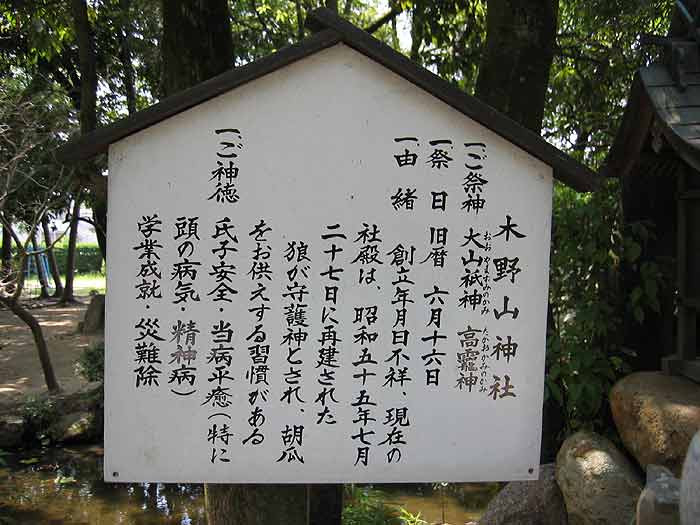 木野山神社
一、ご祭神 大山祇神 高龗神
おおやまずみのかみ たかおかみのかみ
一、祭日 旧暦 六月十六日
一、由緒 創立年月日不祥、現在の
社殿は、昭和五十五年七月
二十七日に再建された
狼が守護神とされ、胡瓜
をお供えする習慣がある
一、ご神徳
氏子安全・当病平癒(特に
頭の病気・精神病)
学業成就・災難除